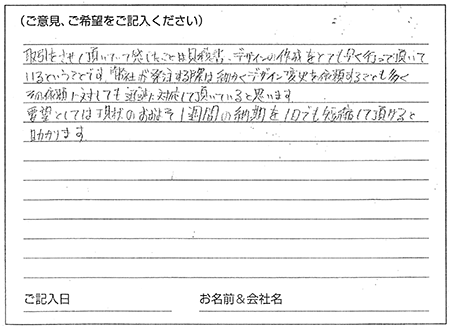 (ご意見、ご希望をご記入ください)
取引をさせて頂いていて感じたことは見積書、デザインの作成をとても早く行って頂いて
いるということです。弊社が発注する際は細かくデザイン変更を依頼することも多く
その依頼に対しても迅速に対応して頂いていると思います。
要望としては現状のおおよそ1週間の納期を1日でも短縮して頂けると
助かります。
ご記入日
お名前&会社名